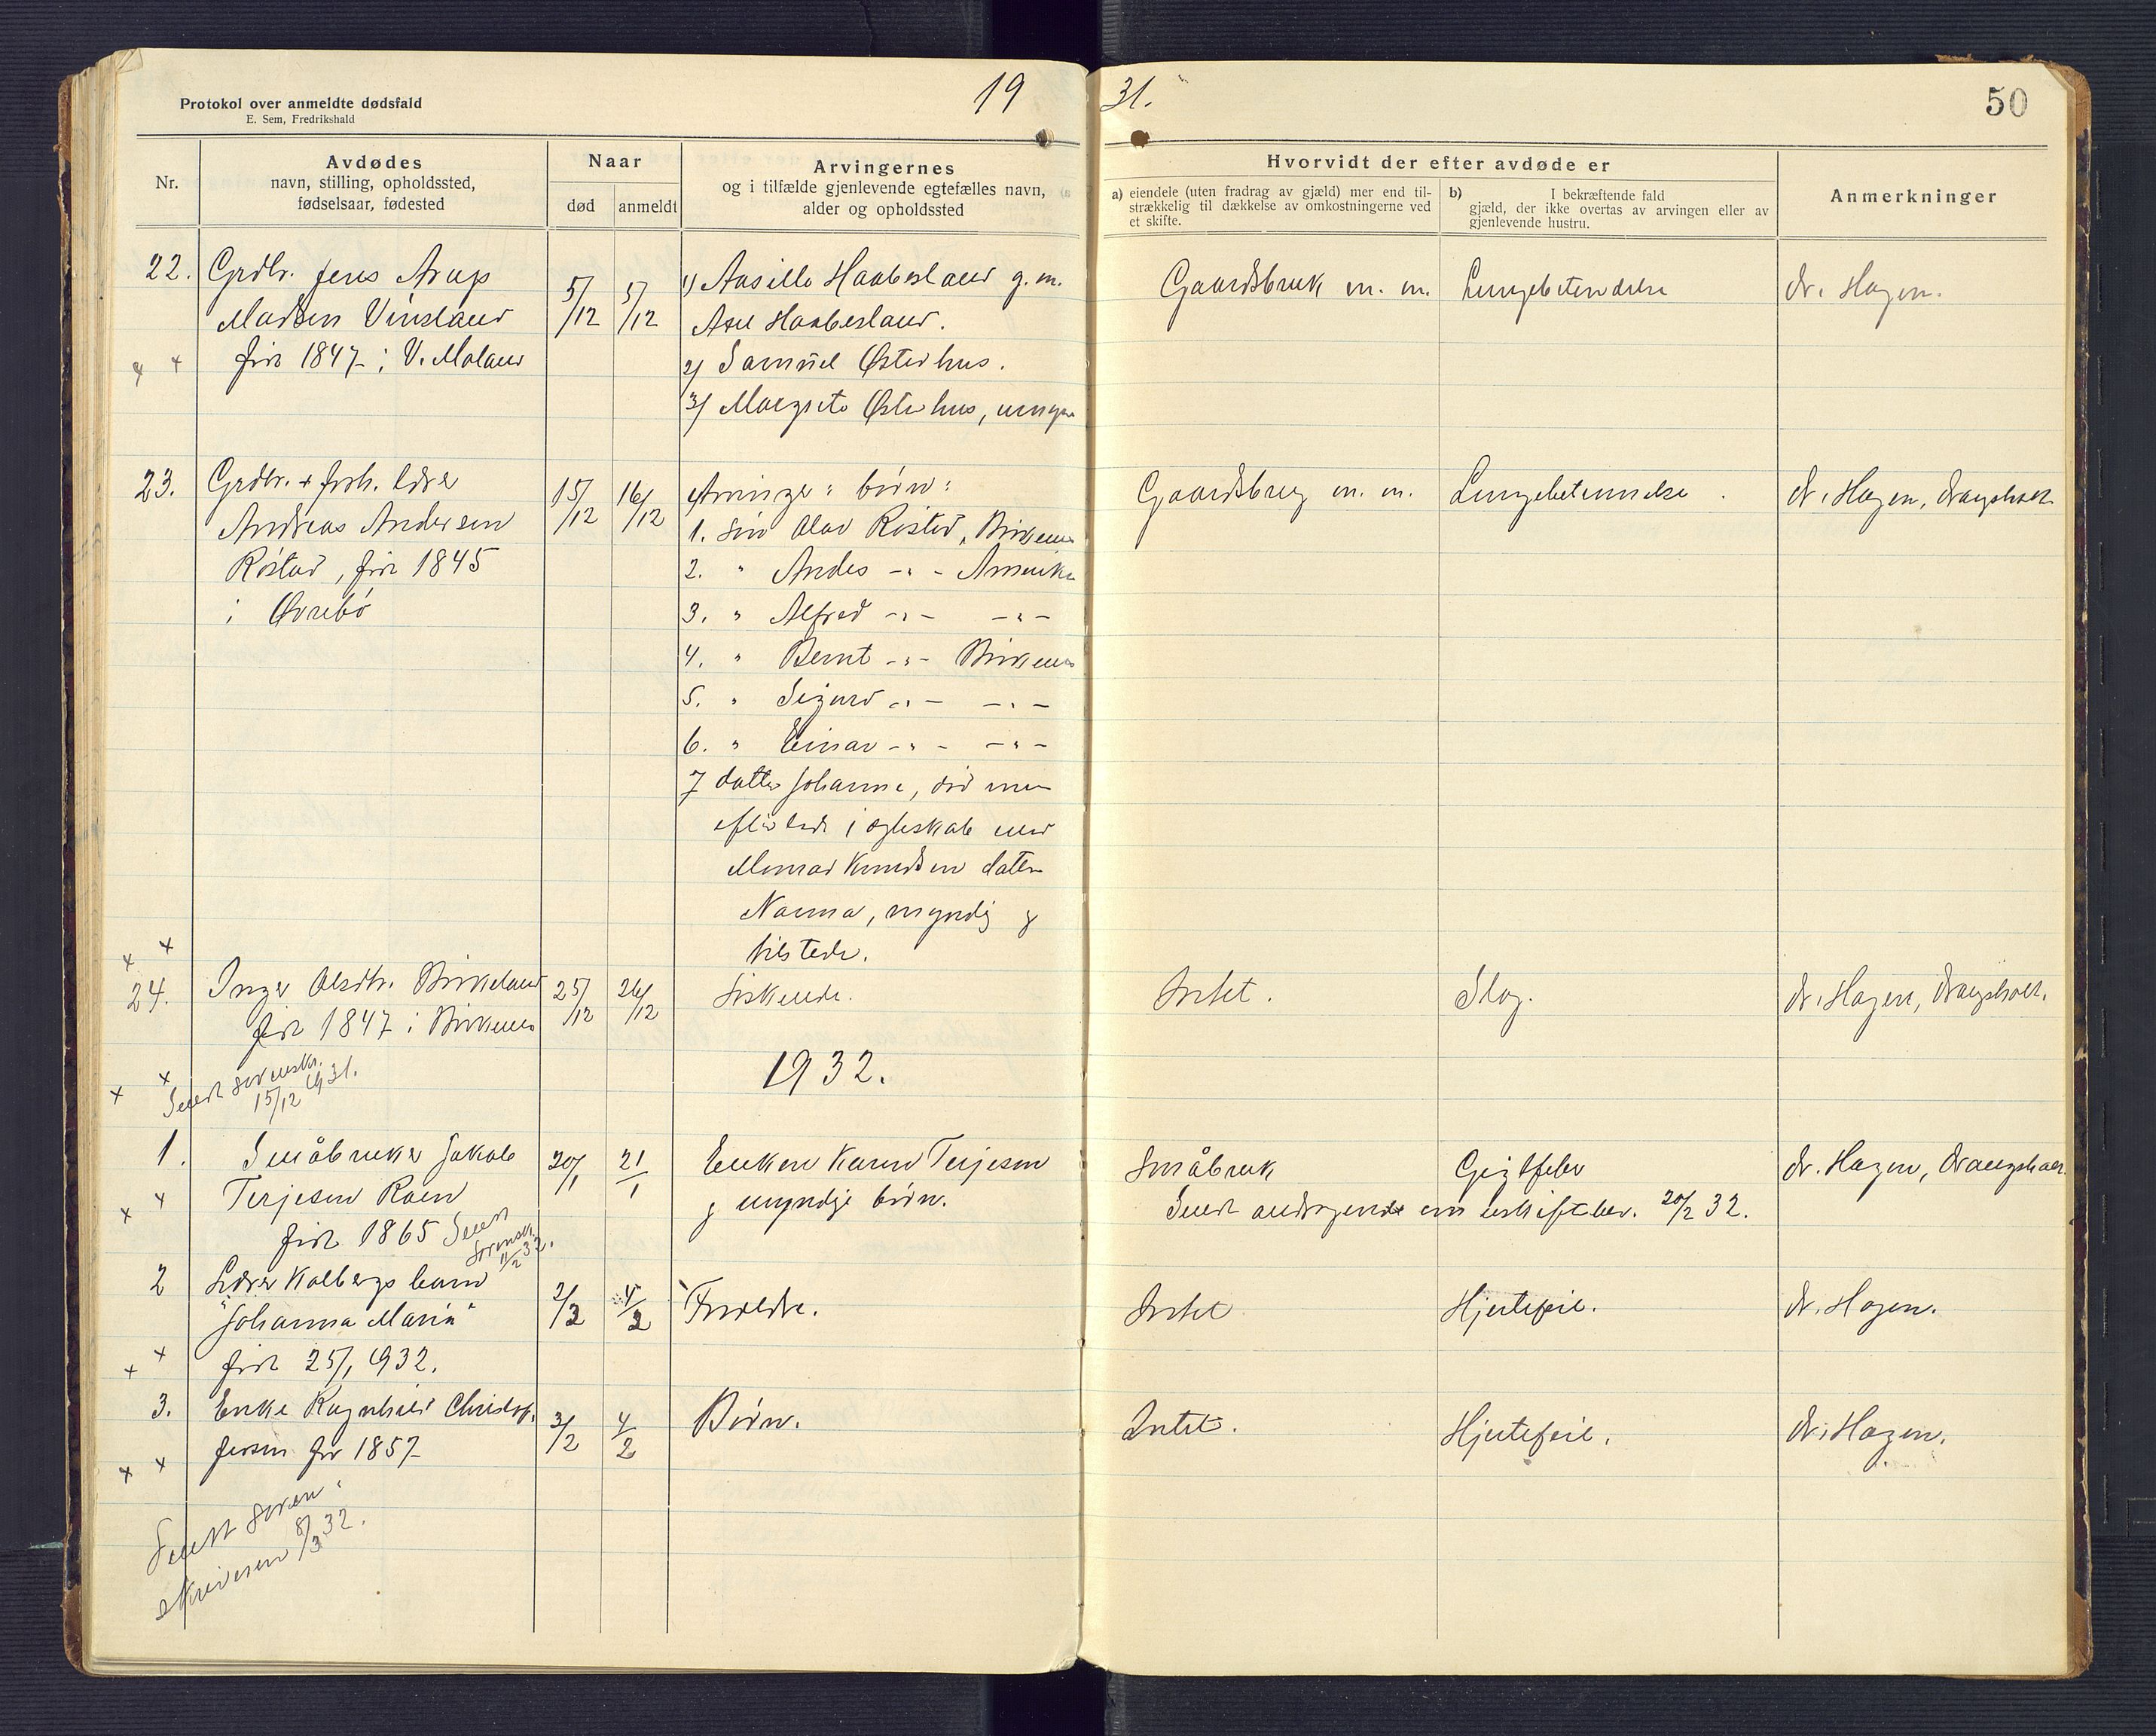 Protokol over anmeldte dødsfald
E. Sem, Fredrikshald
19 31.
50
Nr.
Avdødes
navn, stilling, opholdssted,
fødselsaar, fødested
Naar
død anmeldt
Arvingernes
og i tilfælde gjenlevende egtefælles navn,
alder og opholdssted
Hvorvidt der efter avdøde er
a) eiendele (uten fradrag av gjæld) mer end til-
strækkelig til dækkelse av omkostningerne ved
et skifte.
b) I bekræftende fald
gjæld, der ikke overtas av arvingen eller av
gjenlevende hustru.
Anmerkninger
22. Grdbr. Jens Arup
Madsen Vinsland
før 1847 i V. Moland
5/12 5/12
1/ Aasille Haabesland g. m.
Axel Haabesland.
2/ Samuel Østerhus.
3/ Margrete Østerhus,
Gaardsbruk m. m. Lungebetendelse dr. Hagen.
23. Grdbr. + forh. lærer
Andreas Andersen
Røstad, før 1845
i Øvrebø
15/12 16/12
Arvinger: børn:
1. Søn Olav Røstad, Birkenes
2. " Andes -"- Amerika
3. " Alfred -"- -"-
4. " Bernt -"- Birkenes
5. " Sigurd -"- -"-
6. " Einar -"- -"-
7 datter Johanne, død men
efterlod i egteskab med
Knudsen datter
Nanna, myndig &
tilstede.
Gaardsbrug m. m. Lungebetennelse. dr. Hagen, Drangsholt
24. Inger Olsdtr. Birkeland
født 1847 i Birkenes
25/12 26/12
Søskende.
Intet. Slag. dr. Hagen, Drangsholt.
Sendt sorenskr.
15/12 1931.
1932.
1. Småbruker Jakob
Terjesen Roen
født 1865 Sendt
sorenskr.
11/2 32.
20/1 21/1
Enken Karen Terjesen
& myndige børn.
Småbruk Gigtfeber dr. Hagen, Drangsholt
Sendt andragende om uskiftebev. 20/2 32.
2 Lærer Kalbergs barn
"Johanna Marie"
født 25/1 1932.
2/2 4/2
Foreldre.
Intet Hjertefeil. dr. Hagen.
3. Enke Ragnhild Christof-
fersen før 1857
3/2 4/2
Børn.
Intet. Hjertefeil. dr. Hagen.
Sendt soren-
skriveren 8/3 32.